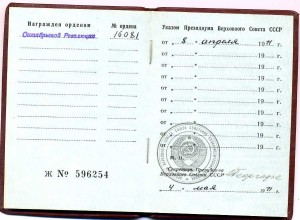 Награжден орденом
№ ордена
Октябрьской Революции
16081
Ж № 596254
Указом Президиума Верховного Совета СССР
от „ 8 “ апреля 1971 г.
от „ “ 19 г.
от „ “ 19 г.
от „ “ 19 г.
от „ “ 19 г.
от „ “ 19 г.
от „ “ 19 г.
от „ “ 19 г.
от „ “ 19 г.
М. П.
Секретарь Президиума
Верховного Совета СССР
4 мая 1971